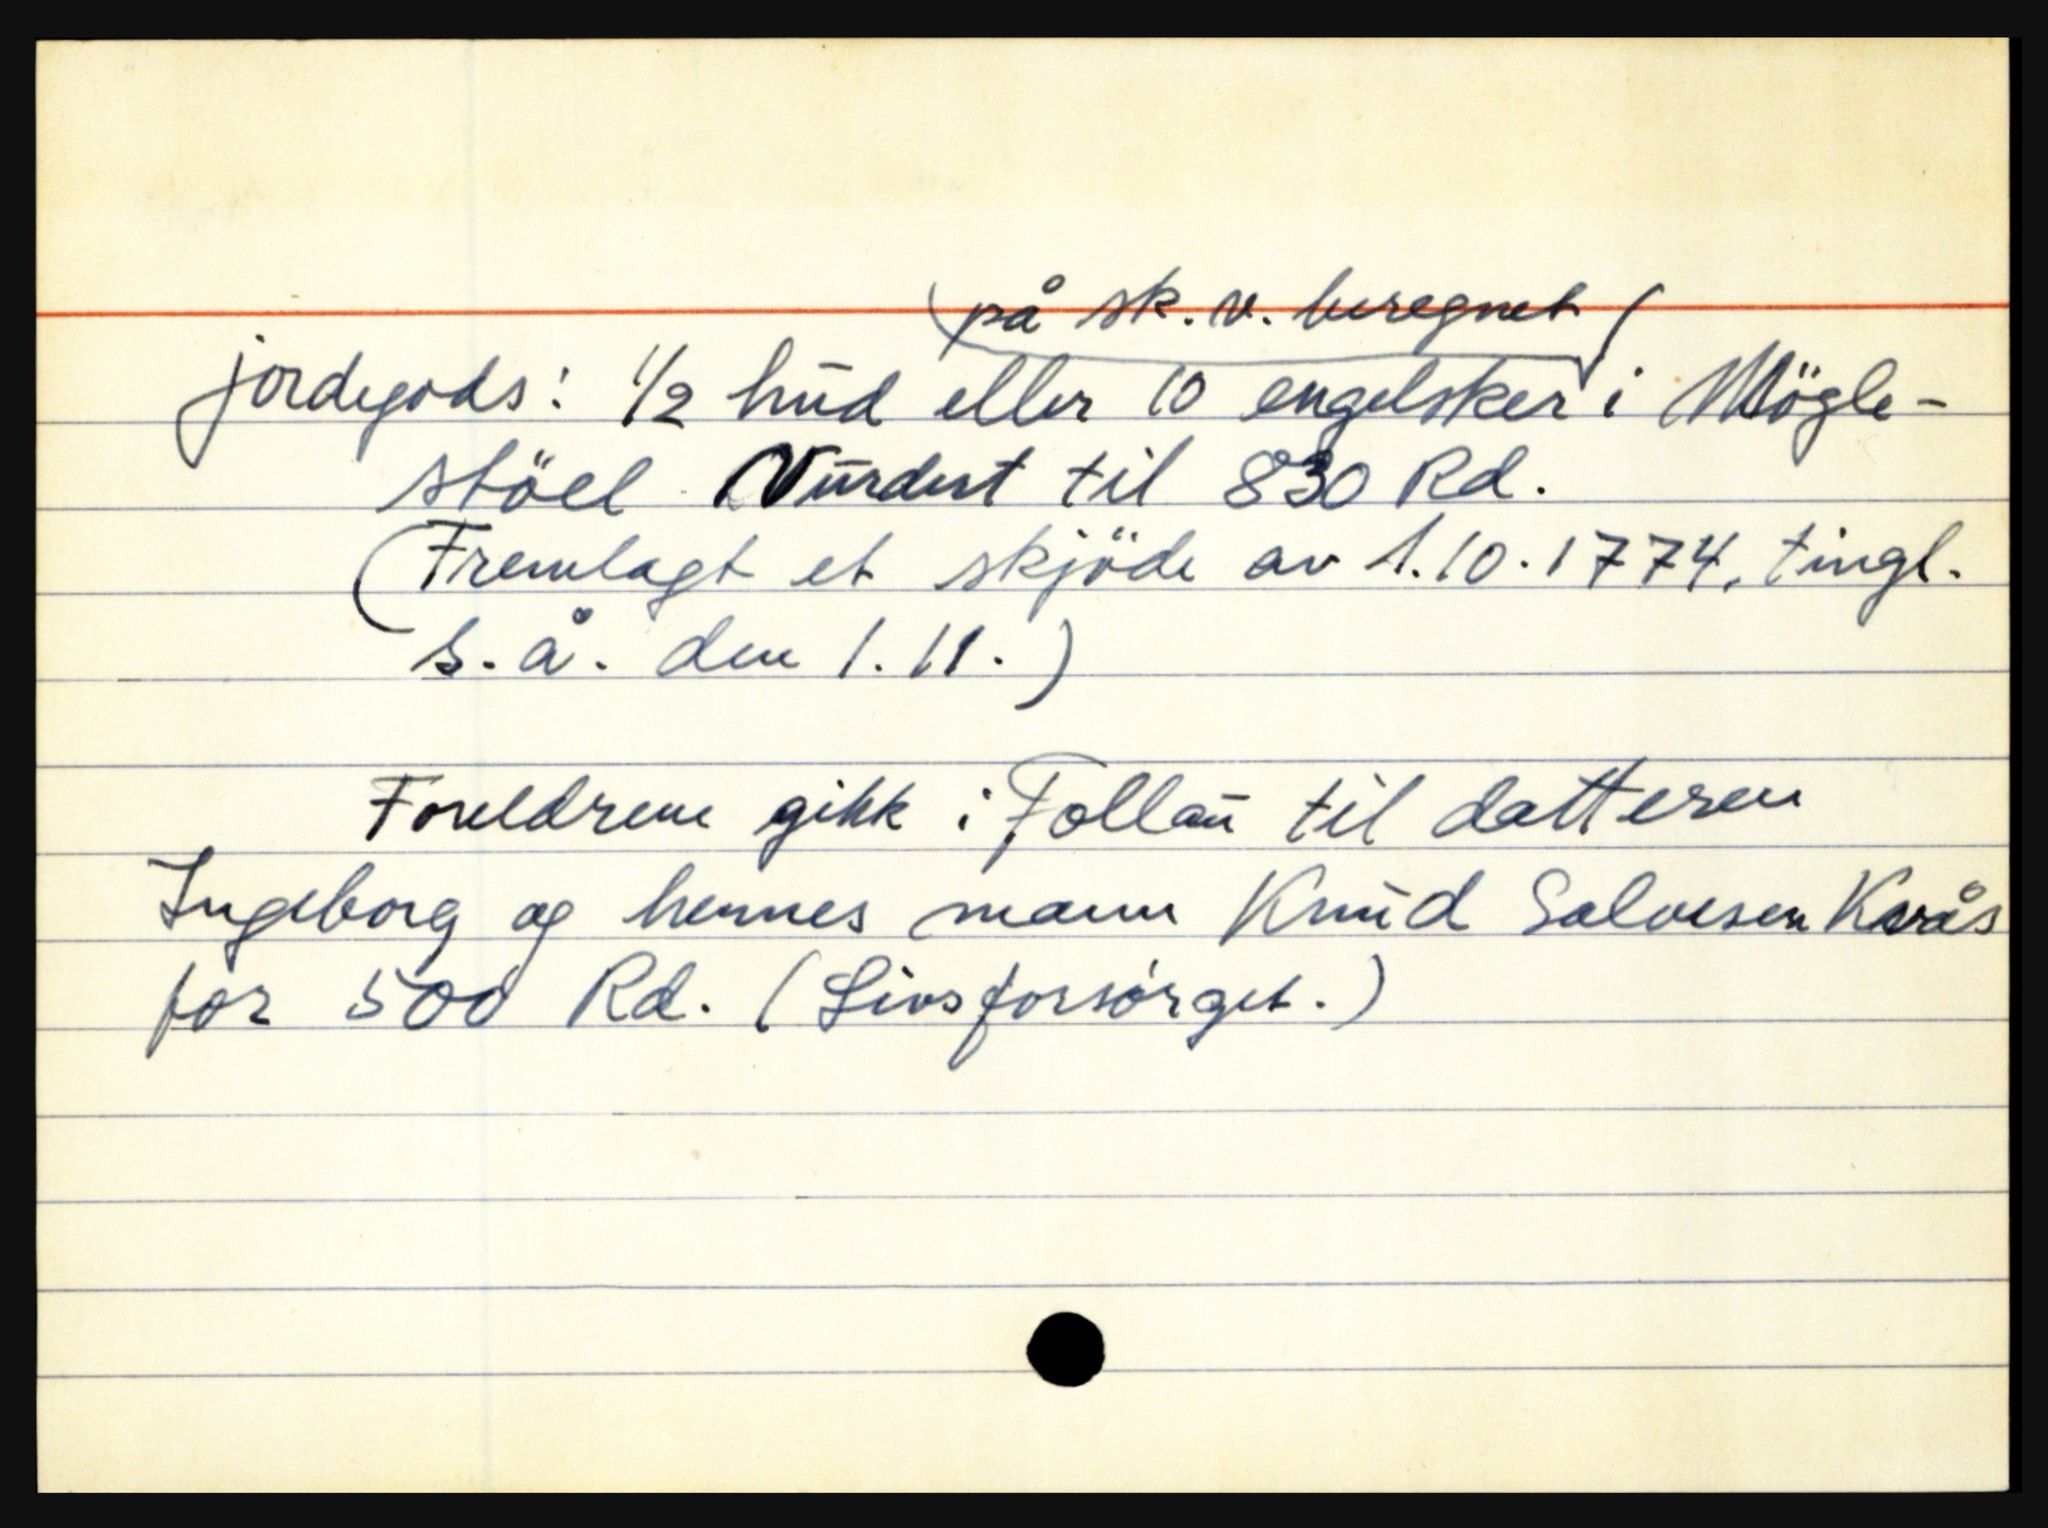 (på sk. v. beregnet)
jordegods: 1/2 hud eller 10 engelsker i Mögle-
stöel Vurdert til 830 Rd.
(Fremlagt et skjöde av 1.10.1774, tingl.
s. å. den 1.11.)
Foreldrene gikk i Follau til datteren
Ingeborg og hennes mann Knud Salvesen Kvås
for 500 Rd. (Livsforsörget.)